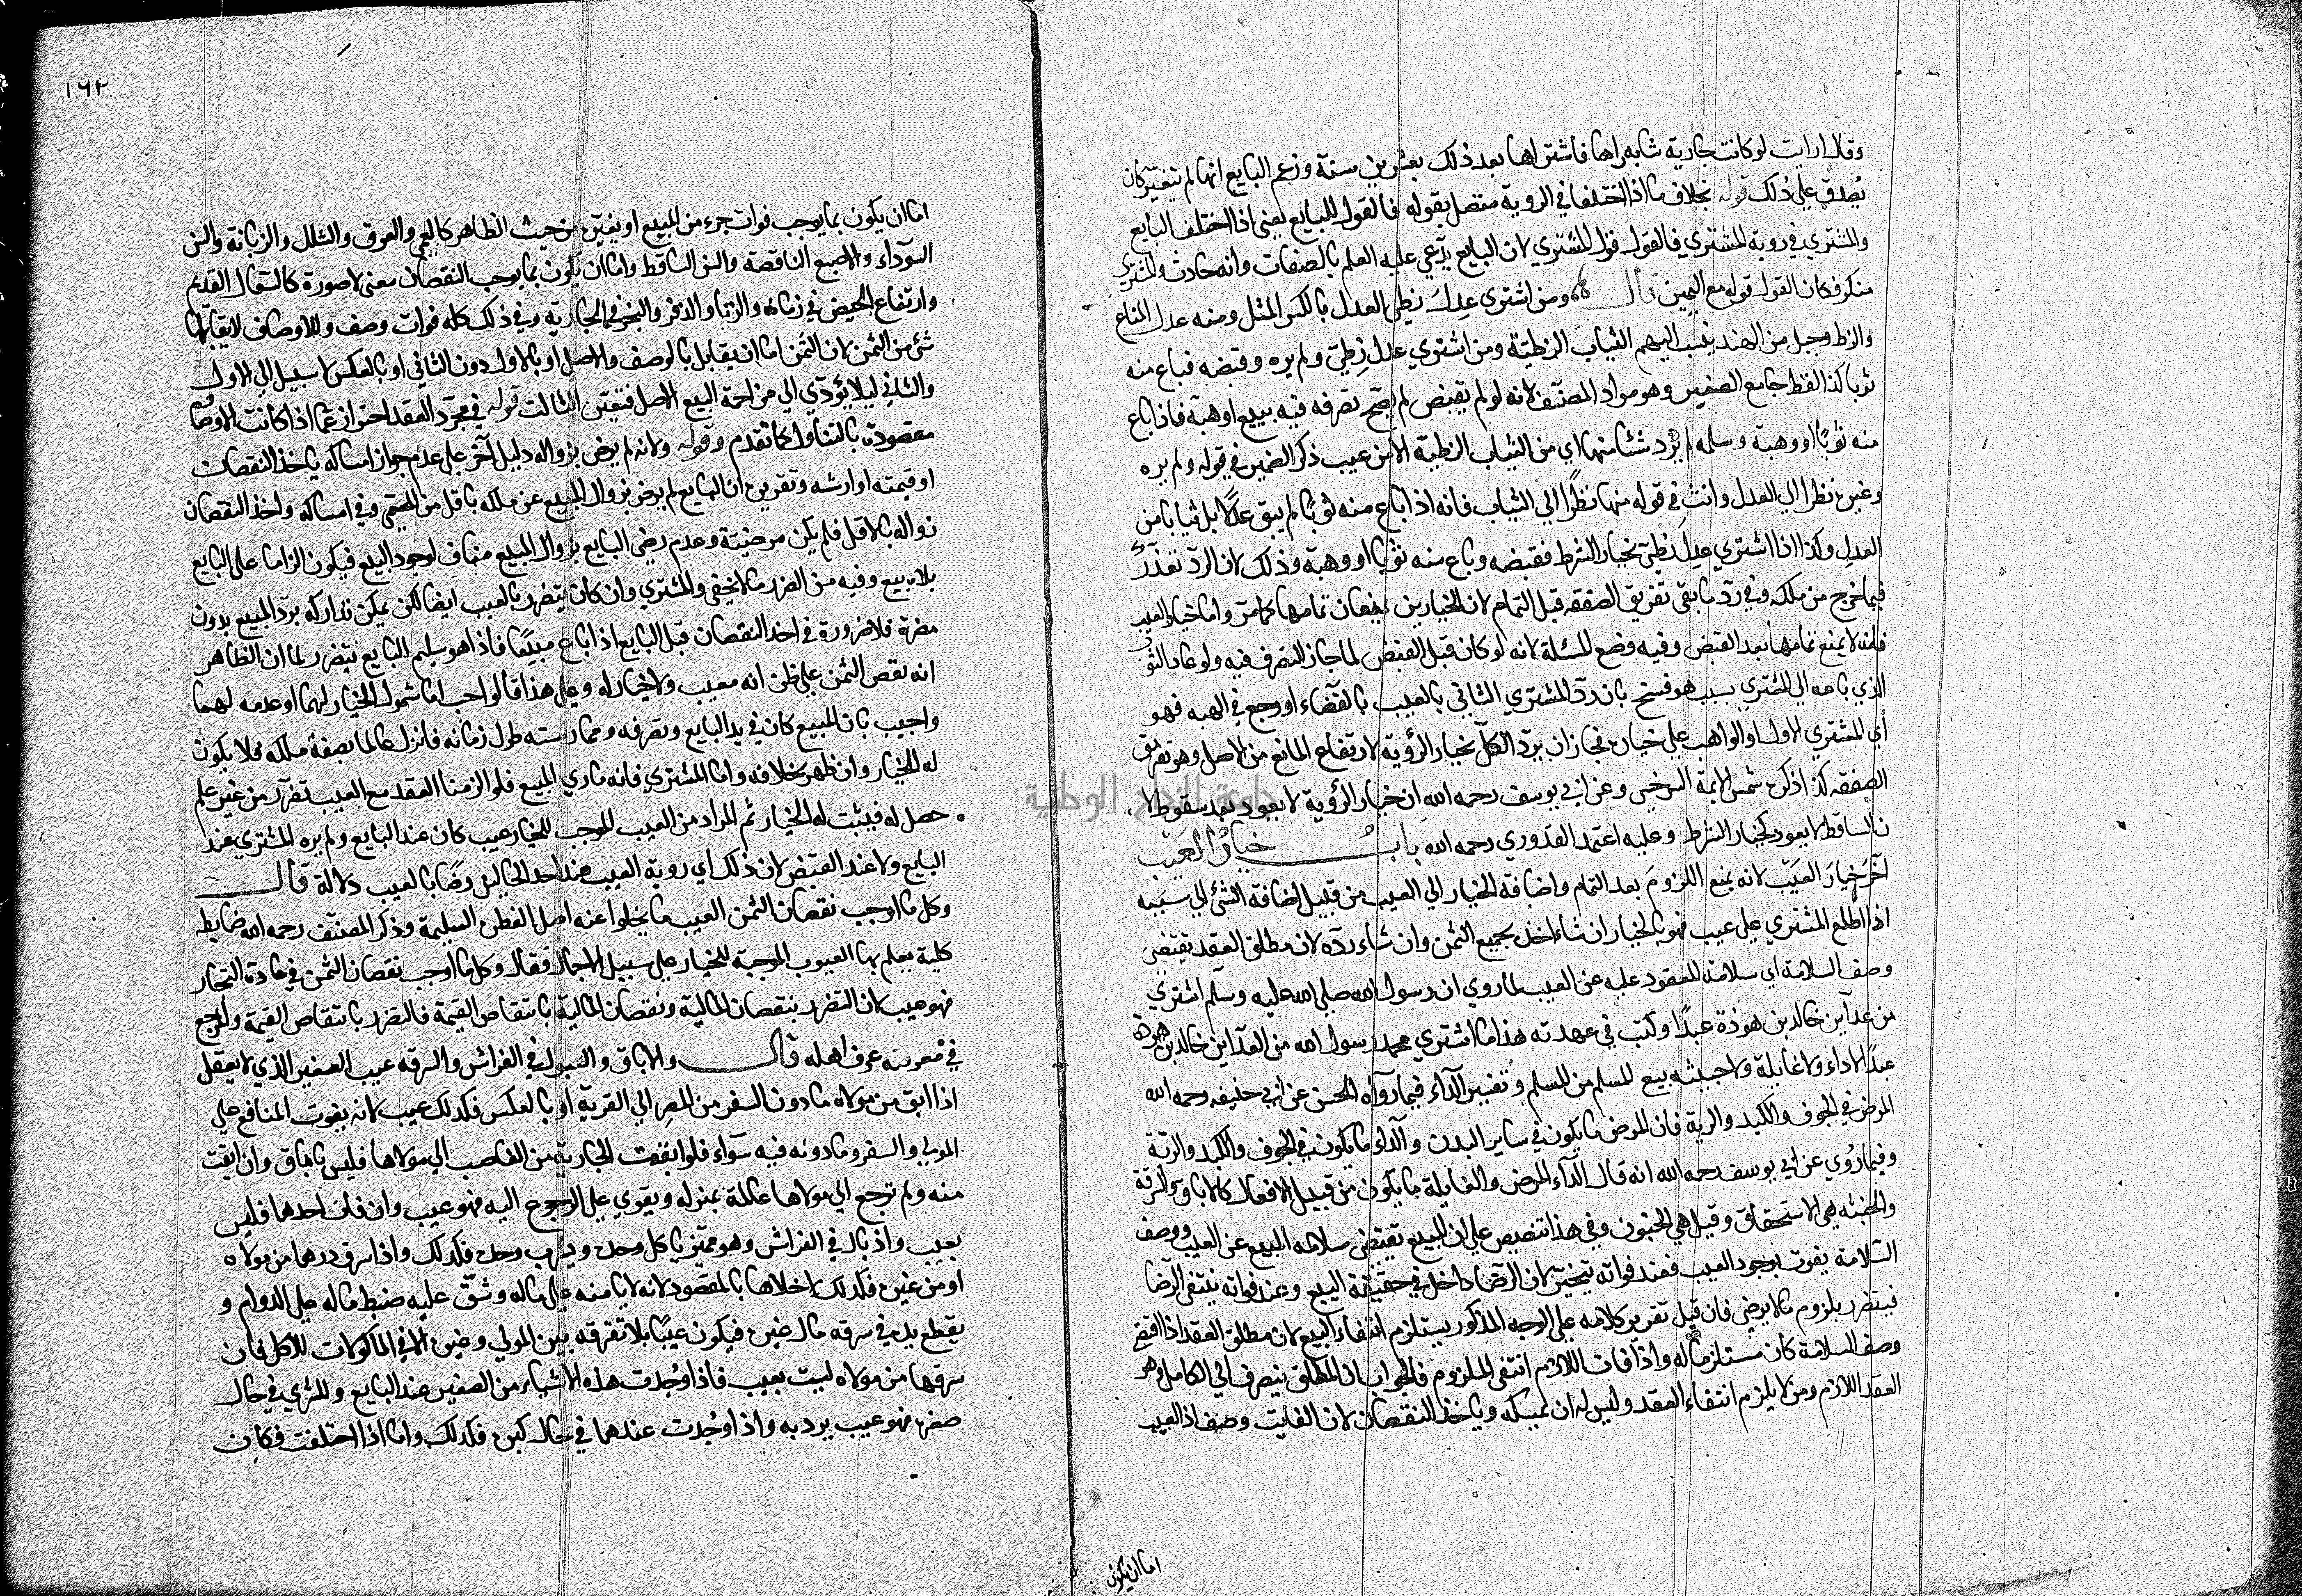 وقال ارايت لو كانت جارية شابه راها فاشتراها بعد ذلك بعشرين سنة وزعم البايع انها لم تتغير كان
يصدق على ذلك قوله بخلاف ما اذا اختلفا في الروية متصل بقوله فالقول للبايع يعنى اذا اختلف البايع
والمشتري في روية المشتري فالقول قول المشتري لان البايع يدعي عليه العلم بالصفات وانه حادث والمشتري
منكر فكان القول قوله مع اليمين قال ومن اشترى عدل زطي العدل بالكسر المثل ومنه عدل المتاع
والزط جيل من الهند ينسب اليهم الثياب الزطية ومن اشتري عدل زطي ولم يره وقبضه فباع منه
ثوبا كذا لفظ جامع الصغير وهو مراد المصنف لانه لو لم يقبض لم يصح تصرفه فيه ببيع او هبة فاذا باع
منه ثوبا او وهبة وسلمه لم يرد شئا منها اي من الثياب الزطية الا من عيب ذكر الضمير في قوله ولم يره
وغيره نظرا الي العدل وانث في قوله منها نظرا الي الثياب فانه اذا باع منه ثوبا لم يبق عدلا بل ثيابا من
العدل وكذا اذا اشتري عدل زطي بخيار الشرط فقبضه وباع منه ثوبا او وهبة وذلك لان الرد تعذر
فيما خرج من ملكه وفي رد ما بقى تفريق الصفقه قبل التمام لان الخيارين يمنعان تمامها كما مر واما خيار العيب
فانه لا يمنع تمامها بعد القبض وفيه وضع المسئلة لانه لو كان قبل القبض لما جاز التصرف فيه ولو عاد الثوب
الذي باعه الي المشتري بسبب هو فسخ بان رد المشتري الثاني بالعيب بالقضاء او رجع في الهبه فهو
أي المشتري الاول او الواهب على خياره فجاز ان يرد الكل بخيار الرؤية لارتفاع المانع من الاصل وهو تفريق
الصفقه كذا ذكره شمس الايمة السرخسي وعن ابي يوسف رحمه الله ان خيار الرؤية لا يعود بعد سقوطه لا
ن الساقط لا يعود كخيار الشرط وعليه اعتمد القدوري رحمه الله باب خيار العيب
آخر خيار العيب لانه يمنع اللزوم بعد التمام واضافة الخيار الي العيب من قبيل اضافة الشئ الي سببه
اذا اطلع المشتري على عيب فهو بالخيار ان شاء اخذ بجميع الثمن وان شاء رده لان مطلق العقد يقتضى
وصف السلامة اي سلامة المعقود عليه عن العيب لما روي ان رسول الله صلى الله عليه وسلم اشتري
من عدا بن خالد بن هوذة عبدا وكتب في عهدته هذا ما اشتري محمد رسول الله من العدا بن خالد بن هوذه
عبدا لا داء ولا غايلة ولا خبثه بيع المسلم من المسلم وتفسير الداء فيما رواه الحسن عن ابي حنيفه رحمه الله
المرض في الجوف والكبد والرية فان المرض ما يكون في ساير البدن والداء ما يكون في الجوف والكبد والرية
وفيما روي عن ابي يوسف رحمه الله انه قال الداء المرض والغايلة ما يكون من قبيل الافعال كالاباق والسرقة
والخبثه هي الاستحقاق وقيل هي الجنون وفي هذا تنصيص على ان البيع يقتضى سلامة المبيع عن العيب ووصف
السلامة يفوت بوجود العيب فعند فواته يتخير لان الرضا داخل في حقيقة البيع وعند فواته ينتفى الرضا
فيتضرر بلزوم ما لا يرضى فان قيل تقرير كلامه على الوجه المذكور يستلزم انتفاء البيع لان مطلق العقد اذا اقتضى
وصف السلامة كان مستلزما له واذا فات اللازم انتفى الملزوم فالجواب ان المطلق ينصرف الي الكامل وهو
العقد اللازم ومن لا يلزم انتفاء العقد وليس له ان يمسكه وياخذ النقصان لان الفايت وصف اذ العيب
اما ان يكون
١٦٢
اما ان يكون بما يوجب فوات جزء من المبيع او يغيره من حيث الظاهر كالعمى والعور والشلل والزمانة والسن
السوداء والاصبع الناقصة والسن الساقط واما ان يكون بما يوجب النقصان معنى لا صورة كالسعال القديم
وارتفاع الحيض في زمانه والزنا والدفر والبخر في الجارية وفي ذلك كله فوات وصف والاوصاف لا يقابلها
شئ من الثمن لان الثمن اما ان يقابل بالوصف والاصل او بالاول دون الثاني او بالعكس لا سبيل الي الاول
والثاني ليلا يؤدي الي مزاحمة البيع الاصل فتعين الثالث قوله في مجرد العقد احتراز عما اذا كانت الاوصاف
مقصودة بالتناول كما تقدم وقوله ولانه لم يرض بزواله دليل آخر على عدم جواز امساكه ياخذ النقصان
او قيمته او ارشه وتقريره ان البايع لم يرض بزوال المبيع عن ملكه باقل من المسمى وفي امساكه واخذ النقصان
زواله بالاقل فلم يكن مرضية وعدم رضى البايع بزوال المبيع مناف لوجود البيع فيكون الزاما على البايع
بلا بيع وفيه من الضرر ما لا يخفى والمشتري وان كان يتضرر بالعيب ايضا لكن يمكن تداركه برد المبيع بدون
مضرة فلا ضرورة في اخذ النقصان قيل البايع اذا باع معيبا فاذا هو سليم البايع يتضرر لما ان الظاهر
انه نقص الثمن على ظن انه معيب ولا خيار له وعلى هذا قالواجب اما شمول الخيار لهما او عدمه لهما
واجيب بان المبيع كان في يد البايع وتصرفه وممارسته طول زمانه فانزل عالما بصفة ملكه فلا يكون
له الخيار وان ظهر بخلافه واما المشتري فانه ما راي المبيع فلو الزمنا العقد مع العيب تضرر من غير علم
حصل له فيثبت له الخيار ثم المراد من العيب الموجب للخيار عيب كان عند البايع ولم يره المشتري عند
البايع ولا عند القبض لان ذلك أي روية العيب عند احد الحالين رضا بالعيب دلالة قال
وكل ما اوجب نقصان الثمن العيب ما يخلوا عنه اصل الفطرة السليمة وذكر المصنف رحمه الله ضابطه
كلية يعلم بها العيوب الموجبة للخيار على سبيل الاجمال فقال وكل ما اوجب نقصان الثمن في عادة التجار
فهو عيب لان التضرر بنقصان المالية ونقصان المالية بانتقاص القيمة فالتضرر بانتقاص القيمة والمرجع
في معرفته عرف اهله قال والاباق والبول في الفراش والسرقه عيب الصغير الذي لا يعقل
اذا ابق من مولاه ما دون السفر من المصر الي القرية او بالعكس فكذلك عيب لانه يفوت المنافع على
المولي والسفر وما دونه فيه سواء فلو ابقت الجارية من الغاصب الي مولاها فليس باباق وان ابقت
منه ولم ترجع الي مولاها عالمة بمنزله ويقوي على الرجوع اليه فهو عيب وان فات احدهما فليس
بعيب واذ بال في الفراش وهو مميز ياكل وحده ويشرب وحده فكذلك واذا سرق درهما من مولاه
او من غيره فكذلك لاخلالها بالمقصود لانه لا يامنه على ماله وشق عليه ضبط ماله على الدوام و
يقطع يده في سرقه مال غيره فيكون عيبا بلا تفرقه بين المولي وغيره الا في الماكولات للاكل فان
سرقها من مولاه ليست بعيب فاذا وجدت هذه الاشياء من الصغير عند البايع والمشتري في حال
صغره فهو عيب يرد به واذا وجدت عندهما في حال كبره فكذلك واما اذا اختلفت فكان